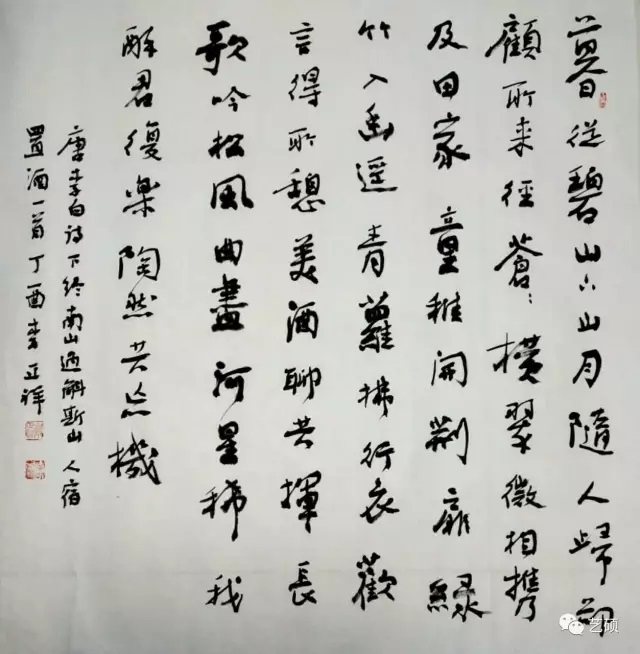 暮從碧山下山月隨人歸却
顧所来徑蒼〻橫翠微相攜
及田家童稚開荆扉緑
竹入幽逕青蘿拂行衣歡
言得所憩美酒聊共揮長
歌吟松風曲盡河星稀我
醉君復樂陶然共忘機
唐李白诗下终南山過斛斯山人宿
置酒一首丁酉李亚祥
艺硕